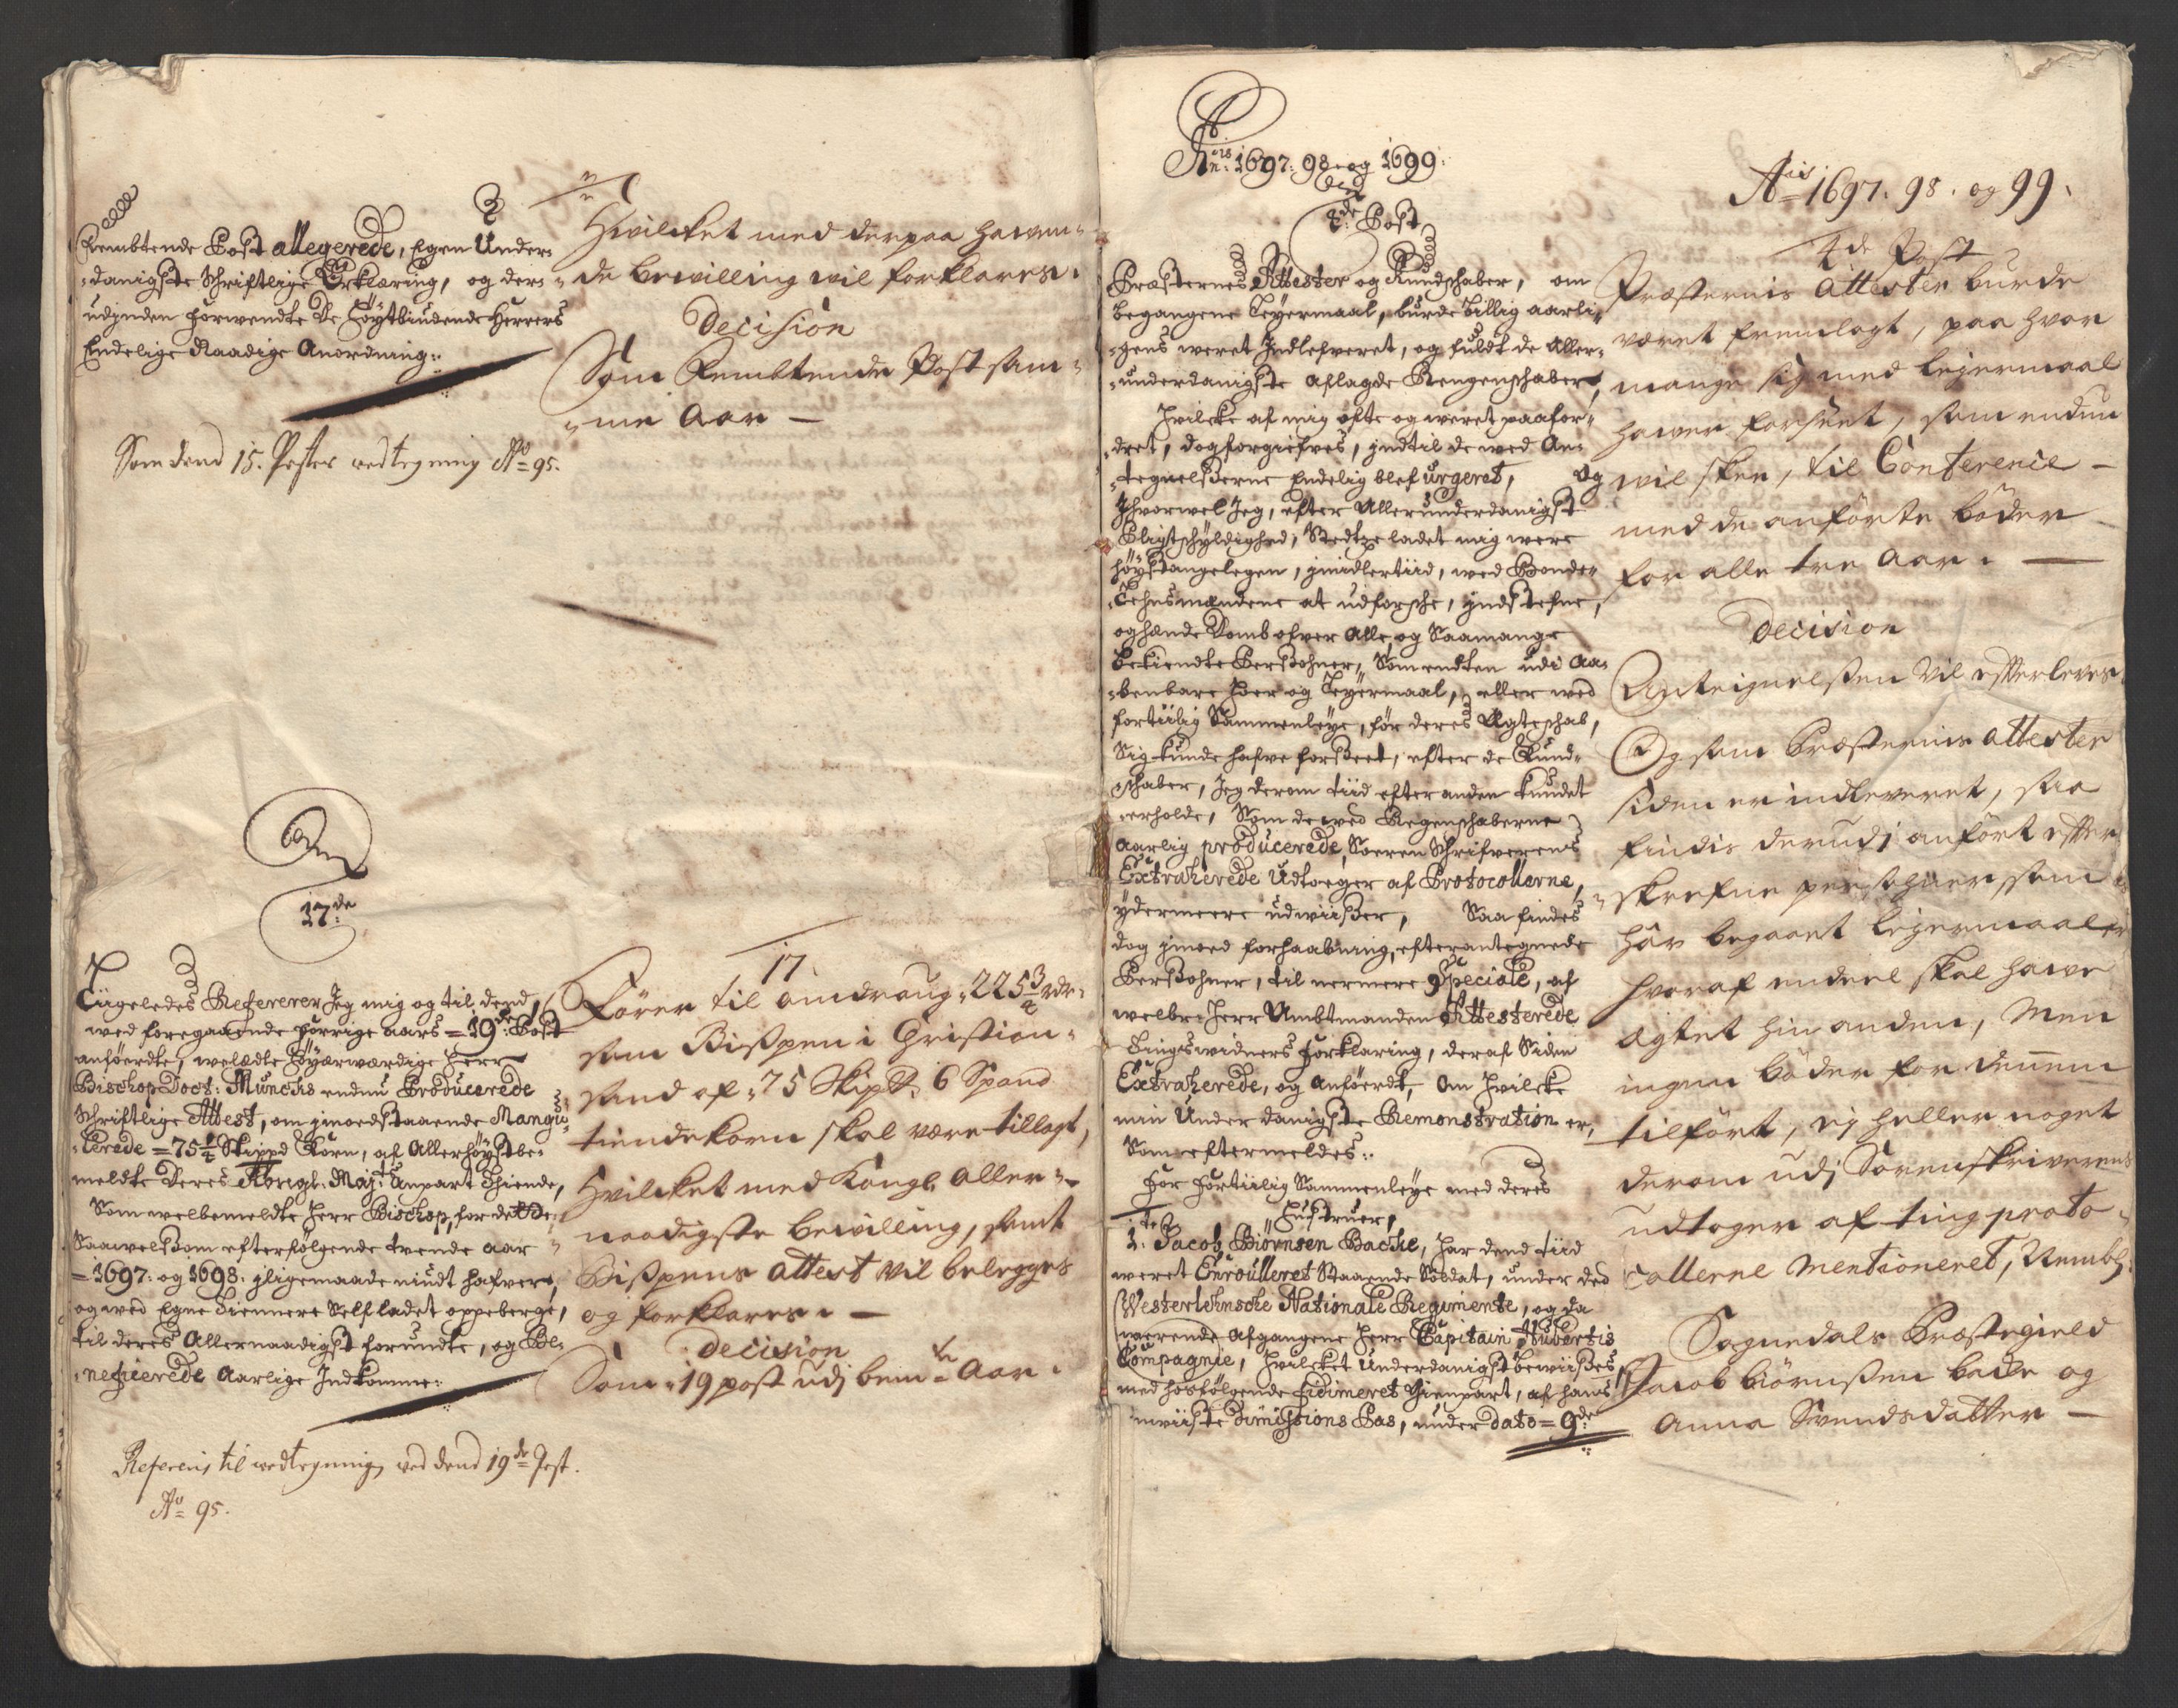 Fembtende Post allegerede, Egen Under-
-danigste Schriftlige Erklæring, og der-
udjnden forwendte De Höytbiudende Herrers
Endelige Naadige Anordning:
Som dend 15. Postes wedtegning Ao 95.
Hvilcket med derpaa hawen-
de bewilling wil forklares.
Decision
Som Fembtende Post sam-
me Aar —
Den
17de
Liigeledes Refererer Jeg mig og til dend,
wed foregaaende förrige aars = 19de Post
anföerdte, welædle Höyærwærdige Herr
Bischop Doct: Munchs endnu Producerede
Schriftlige Attest, om jmodstaaende Mangu-
-lerede = 75½ Skippd Korn, af Allerhöystbe-
meldte Deres Kongl: Mayts Anpart Thiende,
Som welbemeldte Herr Bischop, for dette
Saawelsom efterfölgende twende aar
= 1697: og 1698: jligemaade niudt hafver,
og wed Egne Tiennere Self ladet oppeberge,
til deres Allernaadigst forundte, og Be-
-neficerede Aarlige Indkomme:
Refereris til wedtegning wed dend 19de Post.
Ao 95.
17.
Förer til Omdraug 225¾ rdr
som Bispen i Christian-
sand af 75 Skipd 6 Spand
tiendekorn skal være tillagt,
Hvilcket med Kongl. Aller-
naadigste bewilling, samt
Bispens attest vil belegges
og forklares. —
Decision
Som 19 post udj bemte Aar.
Annis 1697: 98 og 1699:
Den
2de Post
Præsternes Attester og Kundschaber, om
begangene Leyermaal, burde billig aarli-
-gens weret Indlefveret, og fuldt de Aller-
-underdanigste aflagde Rengenschaber,
Hvilcke af mig ofte og weret paafor-
-dret, dog forgiefves, jndtil de wed An-
-tegnelserne Endelig blef urgeret, Og
Ihvorwel Jeg, efter Allerunderdanigst
Pligtschyldighed, Stedtze ladet mig were
höystangelegen, jmidlertiid, wed Bonde-
-Lehnsmændene at udforsche, jndstefne,
og hænde Domb ofver Alle, og Saamange
bekiendte Persohner, Som endten udi Aa-
-benbare Hoer og Leyermaal, eller wed
fortiilig Sammenleye, för deres Ægteschab,
Sig kunde hafve forseet, efter de Kund-
schaber, Jeg derom tiid efter anden kundet
erholde, Som de wed Regenschaberne
Aarlig producerede Soeren Schrifverens
Extraherede Udtoger af Protocollerne,
ydermeere udwiiser, Saa findes
dog jmod forhaabning, efterantegnede
Persohner, til nermere Speciale, af
welbr: Herr Ambtmanden Attesterede
Tingswidners forklaring, deraf Siden
Extraherede, og Anföerdt, Om Hvilcke
min Underdanigste Remonstration er,
Som eftermeldes:
For Fortiilig Sammenleye med deres
Hustruer,
1. Jacob Biörnsen Bache, har dend tiid
weret Enroulleret Staaende Soldat, under ded
Westerlehnsche Nationale Regimente, og da
werende afgangene Herr Capitain Hubertis
Compagnie, Hvilcket Underdanigst bewiises
med hosfölgende fidimeret Gienpart, af hans
mviiste dimissions Pas, under dato = 9de
Ais 1697. 98. og 99.
2de Post
Præsternis attester burde
været fremlagt, paa hvor
mange sig med leyermaal
hawer forseet, som endnu
wil skee, til Conferenie —
med de anförte böder
for alle tre Aar. —
Decision
Anteignelsen Vil efterleves.
Og som Præsternis attester
siden er indleveret, saa
findis derudj anfört efter-
skrefne persohner som
har begaaet leyermaal,
hvoraf endeel skal hawe
ægtet hinanden, Men
ingen böder for dennem
tilfört, ej heller noget
derom udj Sorenskriverens
udtoger af tingproto-
collerne Mentioneret, Nembl:
Sognedals Præstegield
Jacob Biörnsen bache og
Anna Svendsdatter —